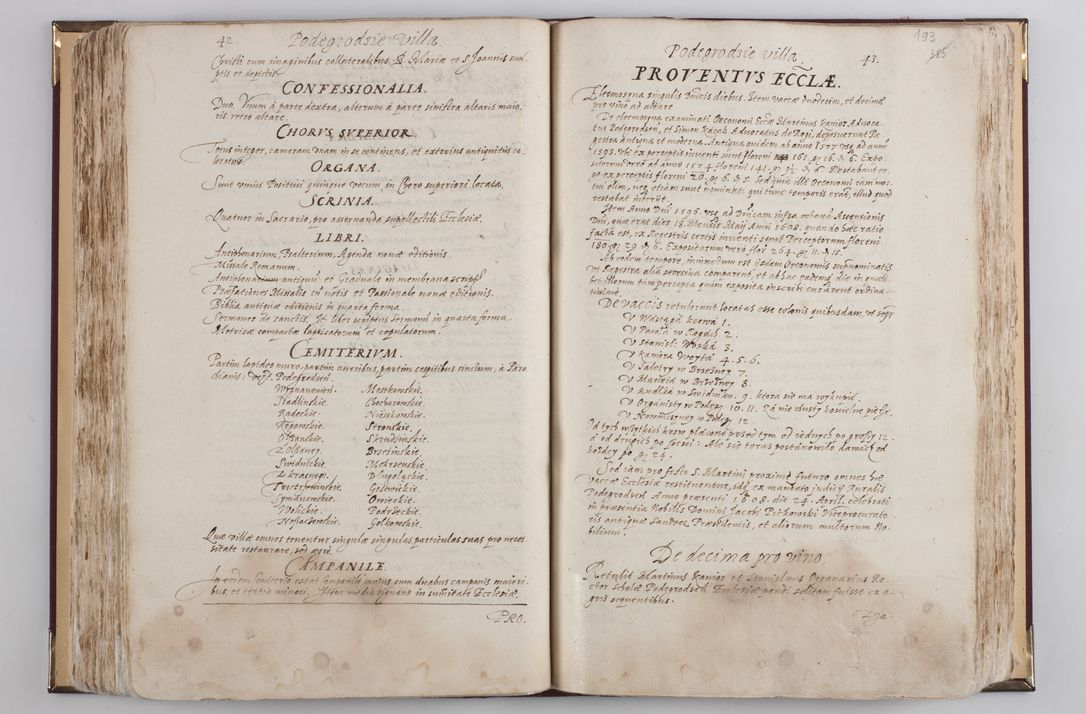 42. Podegrodzie villa.
Christi cum imaginibus collateralibus B. Mariæ et S. Joannis scul
ptis et depictis.
CONFESSIONALIA.
Duo. Vnum à parte dextra, alterum à parte sinistra altaris maio
ris retro altare.
CHORVS SVPERIOR.
Totus integer, cameram vnam in se continens, et exterius antiquitus co
loratus.
ORGANA.
Sunt vnius Positiui quinque vocum, in Choro superiori locata.
SCRINIA.
Quatuor in Sacrario, pro asseruanda supellectili Ecclesiæ.
LIBRI.
Antiphonarium, Psalterium, Agenda nouæ editionis.
Missale Romanum.
Antiphonarium antiquum et Graduale in membrana script.
Præfationes Missalis cũ notis et Passionale nouæ editionis.
Biblia antiquæ editionis in quarta forma.
Sermones de sanctis. It. liber scriptus Sermonũ in quarta forma.
Metricæ compactæ baptisatorum et copulatorum.
CEMITERIVM.
Partim lapideo muro, partim asseribus, partim cespitibus cinctum, à Paro
chianis. Podegrodien.
Wyglanowien. Mostkowskie.
Stadlinskie. Chochorowskie.
Radeckie. Niéskowskie.
Rogowskie. Stronskie.
Olszanskie. Skrudzinskie.
Brzezinskie.
Swidnickie. Mokrzenskie.
Dlugolackie.
Gostwickie.
Symanowskie. Owieckie.
Wolickie. Podrzeckie.
Golkowskie.
Quæ villæ omnes tenentur singulæ singulas particulas suas pro neces
sitate restaurare, sed ægrè.
CAMPANILE.
In eodem Cemiterio extat Campanile maius cum duabus campanis maiori
bus, et tertia minori. Item media signans in sum̃itate Ecclesiæ.
PRO.
193
385
Podegrodzie villa 43.
PROVENTVS ECCLÆ.
Eleemosyna singulis Dnicis diebus. Item vaccæ duodecim, et decima
pro vino ad altare.
De eleemosyna examinati Oeconomi Ecclæ Martinus Kanior Aduoca
tus Podegrodzen. et Simon Kaczk Aduocatus de Roji, deposuerunt Re
gestra antiqua et moderna. Antiqua quidem ab anno 1577 vsq ad annũ
1593. vbi ex perceptis inuenti sunt floreni 161. gr 16. d. 6. Expo
sitorum verò ab anno 1574 floreni 141. gr 9½. d 6. Restabant er
go ex perceptis floreni 20. gr 6. d. 5. Sed quia illi Oeconomi iam mor
tui olim, neq etiam sunt nominati qui tunc temporis erãt, illud quod
restabat interiit.
Item Anno Dni 1596. vsq ad Dnicam infra octauã Ascensionis
Dni, quæ erat dies 18. Mensis Maij Anni 1608. quando hæc ratio
facta est, ex Regestris certis inuenti sunt Perceptorum floreni
180. gr 29. d. 6. Expositorum verò flor 264. gr 11. d. 15.
Ab eodem tempore, iniunctum est ijsdem Oeconomis supranominatis
vt Regestra alia seorsiua comparent, et ab hac eadem die in quali
bet, illorum tam percepta quàm exposita inscribi curarent ordina
tissimè.
DE VACCIS retulerunt locatas esse colonis quibusdam, vt sequr
V Wastaga krowa 1.
V Pawla w Rogach 2.
V Stanisl: Woská 3.
V Kaniora Woytá 4. 5. 6.
V Salétry w Brzesney 7.
V Macieia w Brzesney 8.
V Kudlika w Swidniku. 9. ktora sie ma wykupić.
V Organisty w Podeg. 10. 11. Zá nie chusty koscielne pierze.
V Nowosczney w Podeg. 12.
Od tych wszytkich krow płácono przed tym od iednych po groszy 12.
á od drugich po szesci: Ale sie teraz postánowiło dawáć od
kożdey po gr 24.
Sed iam pro festo S. Martini proximè futuro omnes hæ
vaccæ Ecclesiæ restituentur, idq ex mandato iudicij Ruralis
Podegrodzen. Anno præsenti 1608. die 24. April. celebrati
in præsentia Nobilis Domini Jacobi Piotkowski Viceprocurato
ris antiquæ Sandecz. Præsidentis, et aliorum multorum No
bilium.
De decima pro vino.
Retulit Martinus Kanior et Stanislaus Organarius Re
ctor scholæ Podegrodzen. Ecclesiæ pendi solitam fuisse ex a
gris sequentibus.